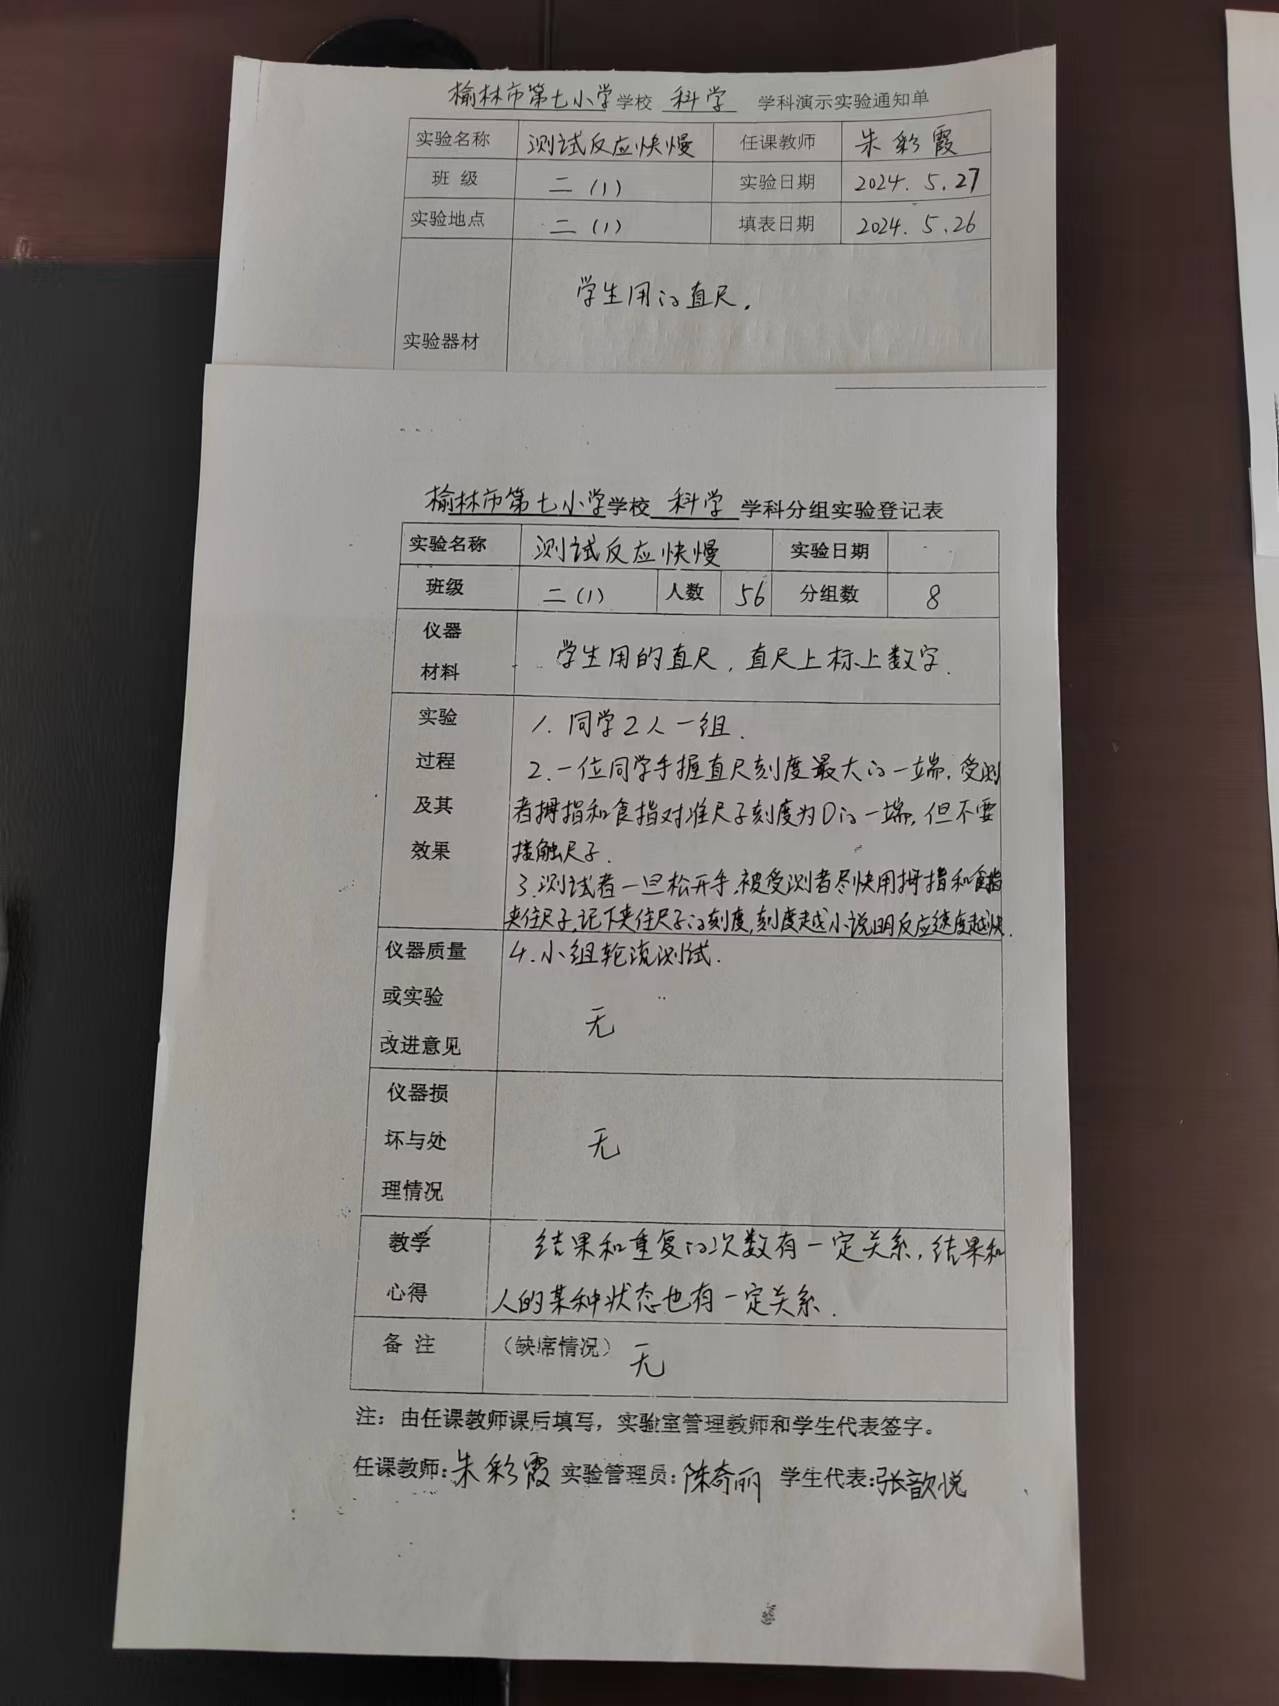 榆林市第七小学学校 科学 学科演示实验通知单
实验名称 测试反应快慢 任课教师 朱彩霞
班 级 二（1） 实验日期 2024.5.27
实验地点 二（1） 填表日期 2024.5.26
学生用的直尺.
实验器材
榆林市第七小学学校 科学 学科分组实验登记表
实验名称 测试反应快慢 实验日期
班级 二（1） 人数 56 分组数 8
仪器
材料
学生用的直尺，直尺上标上数字.
实验
过程
及其
效果
1. 同学2人一组.
2. 一位同学手握直尺刻度最大的一端，受测
者拇指和食指对准尺子刻度为0的一端，但不要
接触尺子.
3.测试者一旦松开手，被受测者尽快用拇指和食指
夹住尺子，记下夹住尺子的刻度，刻度越小说明反应速度越快.
4.小组轮流测试.
仪器质量
或实验
改进意见
无
仪器损
坏与处
理情况
无
教学
心得
结果和重复的次数有一定关系，结果和
人的某种状态也有一定关系.
备 注 （缺席情况） 无
注：由任课教师课后填写，实验室管理教师和学生代表签字。
任课教师:朱彩霞 实验管理员:陈奇丽 学生代表:张歆悦